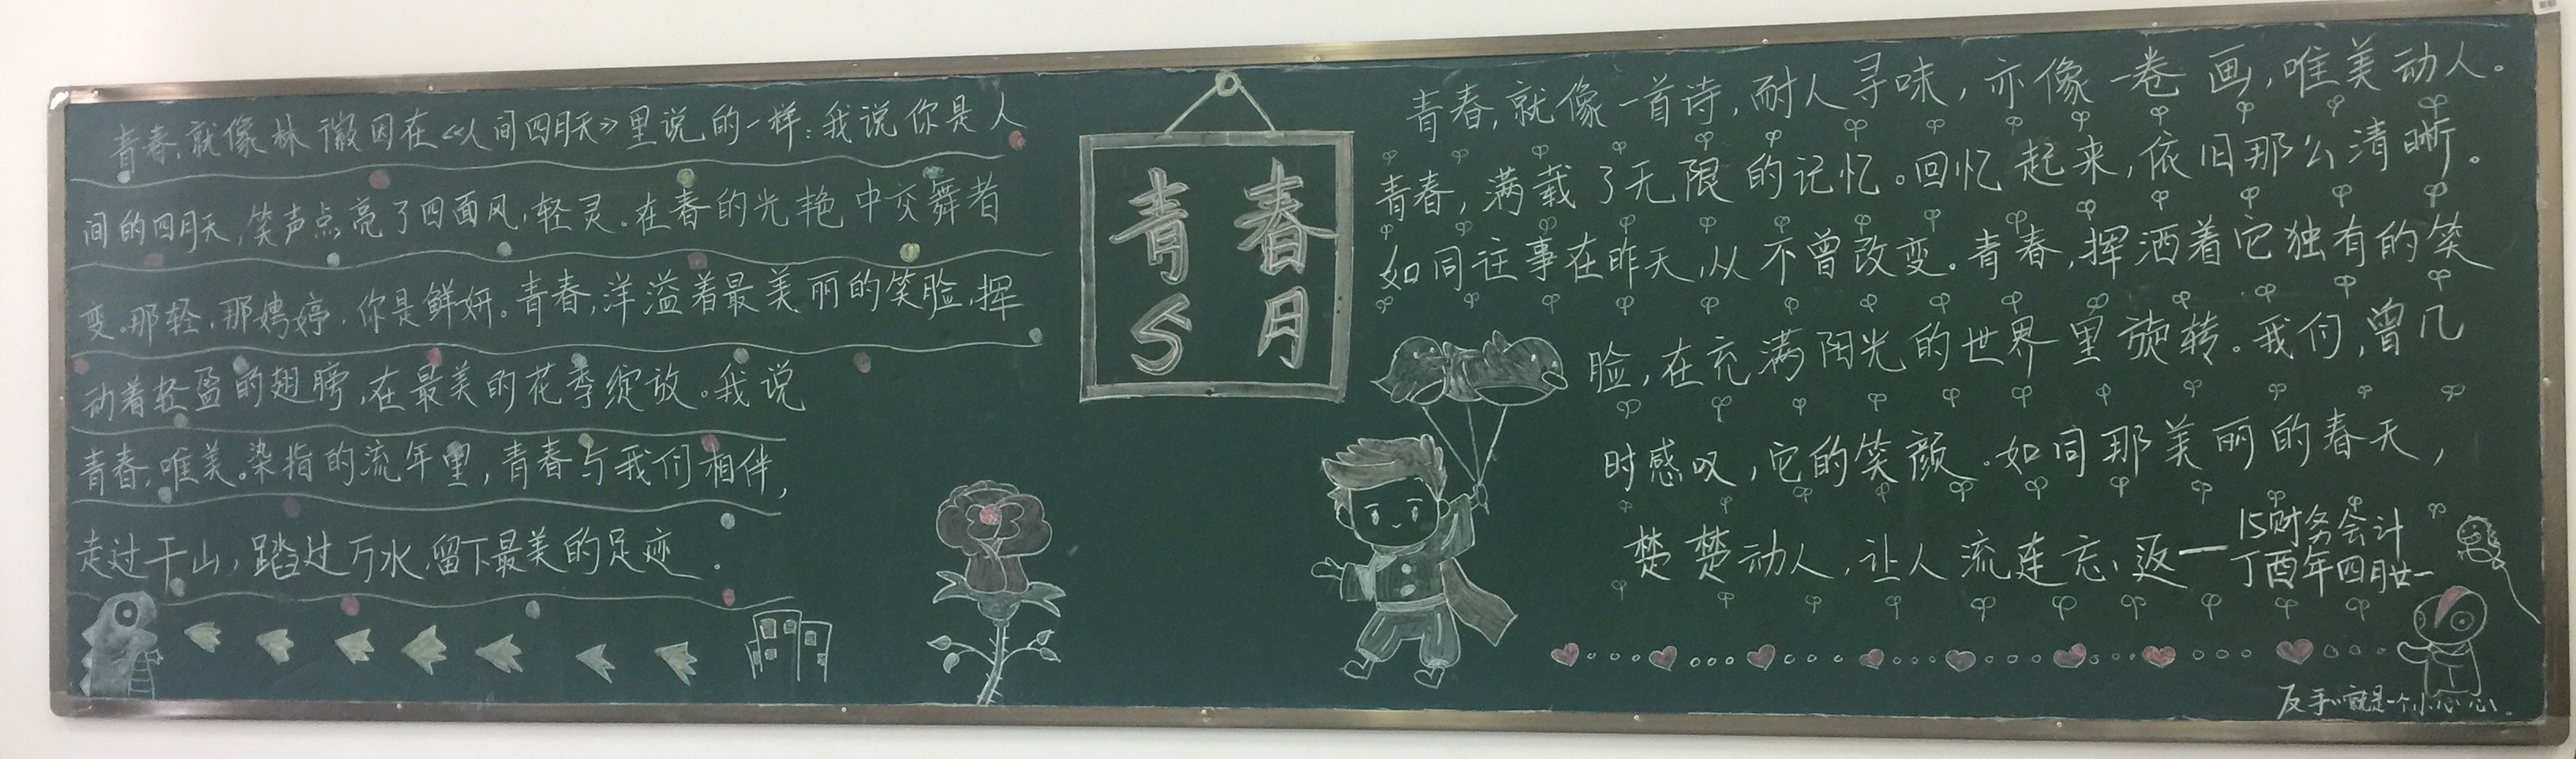 青春,就像林徽因在《人间四月天》里说的一样:我说你是人
间的四月天,笑声点亮了四面风,轻灵。在春的光艳中交舞者
变。那轻,那娉婷,你是鲜妍。青春,洋溢着最美丽的笑脸,挥
动着轻盈的翅膀,在最美的花季绽放。我说
青春,唯美。染指的流年里,青春与我们相伴,
走过千山,踏过万水,留下最美的足迹
青春
5月
青春,就像一首诗,耐人寻味,亦像一卷画,唯美动人。
青春,满载了无限的记忆。回忆起来,依旧那么清晰。
如同往事在昨天,从不曾改变。青春,挥洒着它独有的笑
脸,在充满阳光的世界里旋转。我们,曾几
时感叹,它的笑颜。如同那美丽的春天,
楚楚动人,让人流连忘返——
15财务会计
丁酉年四月廿一
反手就是一个小心心。